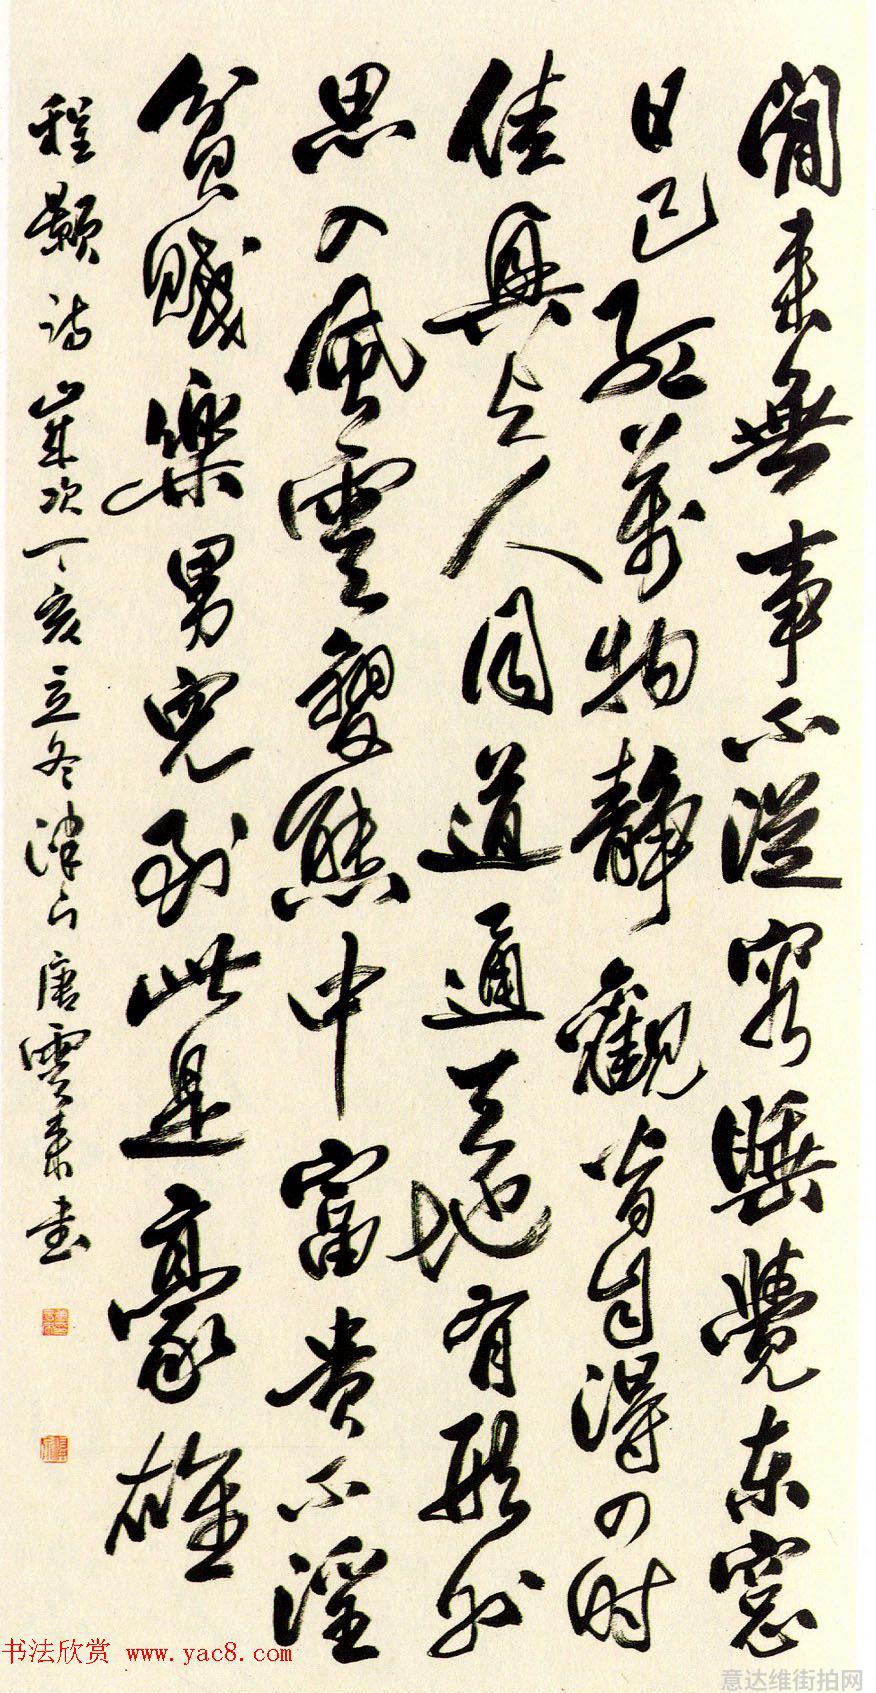 閒来無事不從容睡覺东窓
日已红萬物静觀皆自得四时
佳興与人同道通天地有形外
思入風雲變態中富贵不淫
貧賤樂男兒到此是豪雄
程颢诗歲次丁亥立冬津门唐雲来书
书法欣赏 www.yac8.com
意达维街拍网